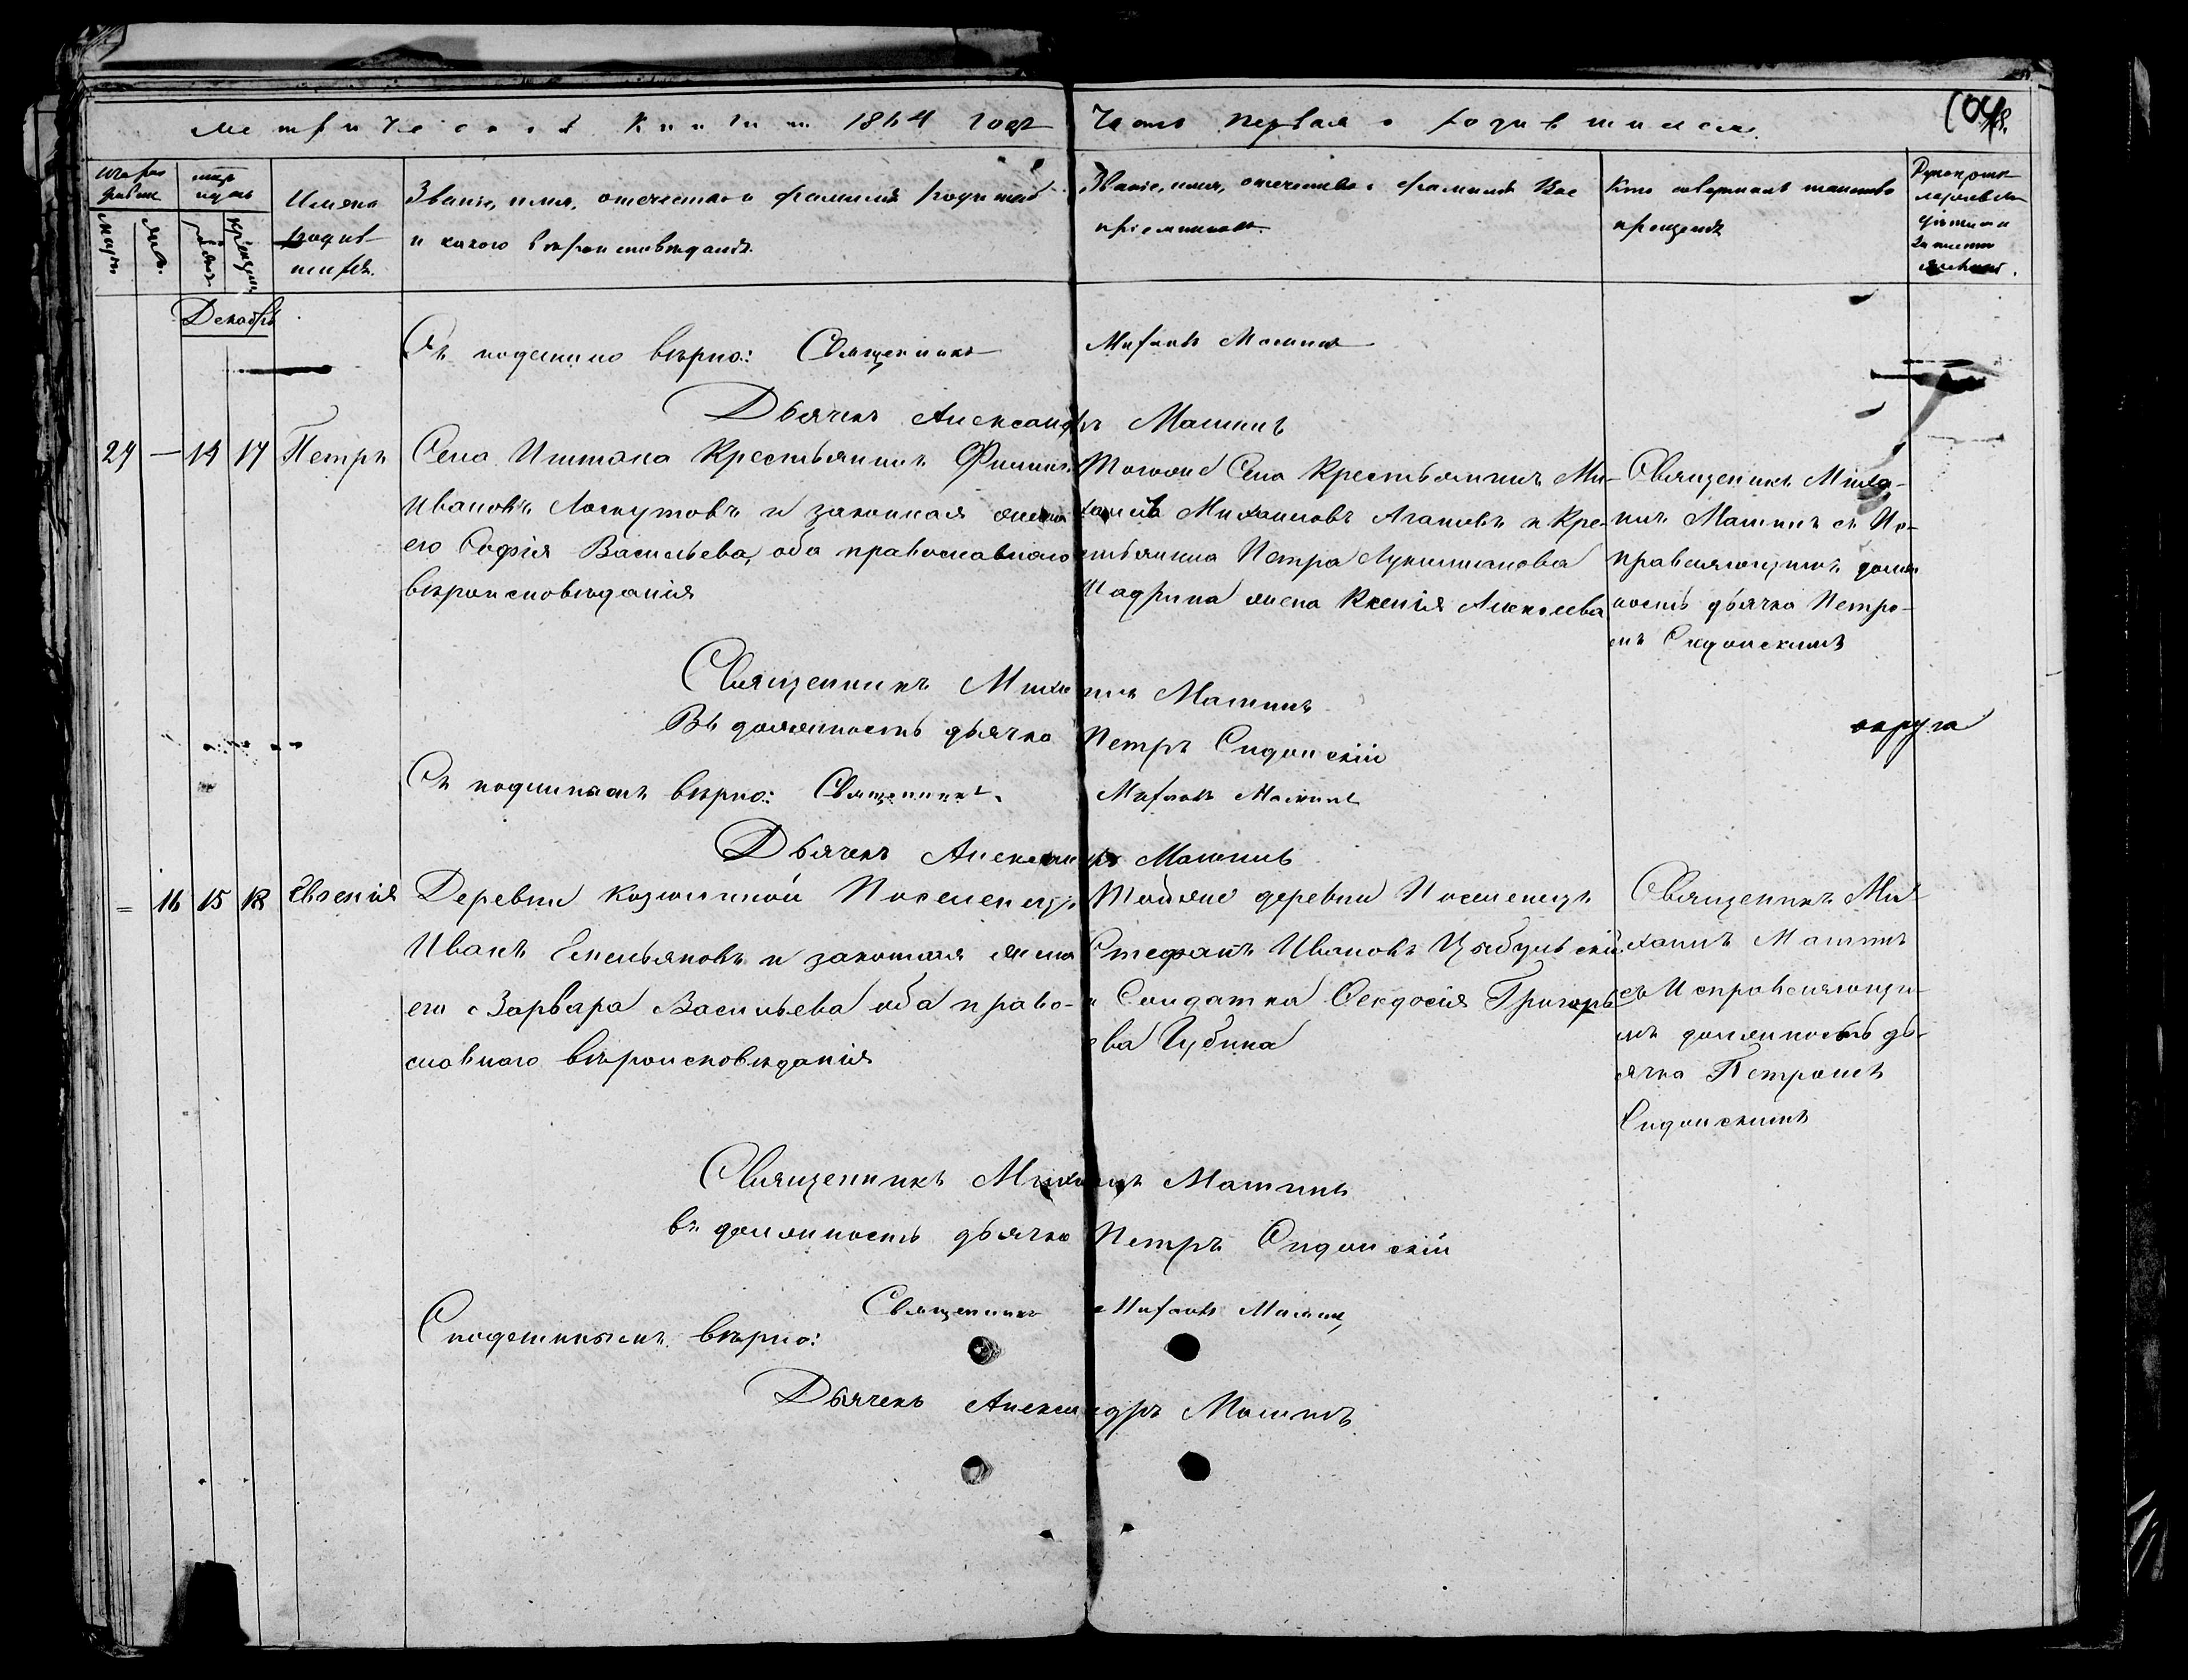 Метрической Книги на 1864 годъ
Часть первая о родившихся.
Мужс. Жен.
рожден. крещен.
Имена
родив-
шихся.
Званіе, имя, отчество и фамилія родителей
и какого вѣроисповѣданія.
Званіе, имя, отчество и фамилія вос
пріемниковъ.
Кто совершалъ таинство
крещенія
Декабрь
Съ подлинно вѣрно: Священникъ Машинъ
Дьячекъ Александръ Машинъ
29 — 14 17 Петръ
Села Иштана Крестьянинъ Филипъ
Ивановъ Лоскутовъ и законная жена
его Софія Васильева, оба православнаго
вѣроисповѣданія
Тогоже Села Крестьянинъ Ми-
хаилъ Михаиловъ Агаповъ и Кре-
стьянина Петра Лукиянова
Шадрина жена Ксенія Алексѣева
Священникъ Миха-
илъ Машинъ съ Ис-
правляющимъ долж
ность дьячка Петро-
мъ Сидонскимъ
Священникъ Михаилъ Машинъ
Въ должность дьячка Петръ Сидонскій
округа
Съ подлиннымъ вѣрно: Священникъ Машинъ
Дьячекъ Александръ Машинъ
= 16 15 18 Евгенія
Деревни Козюлиной Поселенецъ
Иванъ Емельяновъ и законная жена
его Варвара Васильева оба право-
славнаго вѣроисповѣданія
Тойже деревни Поселенецъ
Стефанъ Ивановъ Цыбульскій
и Солдатка Феодосія Григорь
ева Губина
Священникъ Ми
хаилъ Машинъ
съ Исправляющи-
мъ должность дь-
ячка Петромъ
Сидонскимъ
Священникъ Михаилъ Машинъ
въ должность дьячка Петръ Сидонскій
Священникъ Машинъ
С подлиннымъ вѣрно:
Дьячекъ Александръ Машинъ